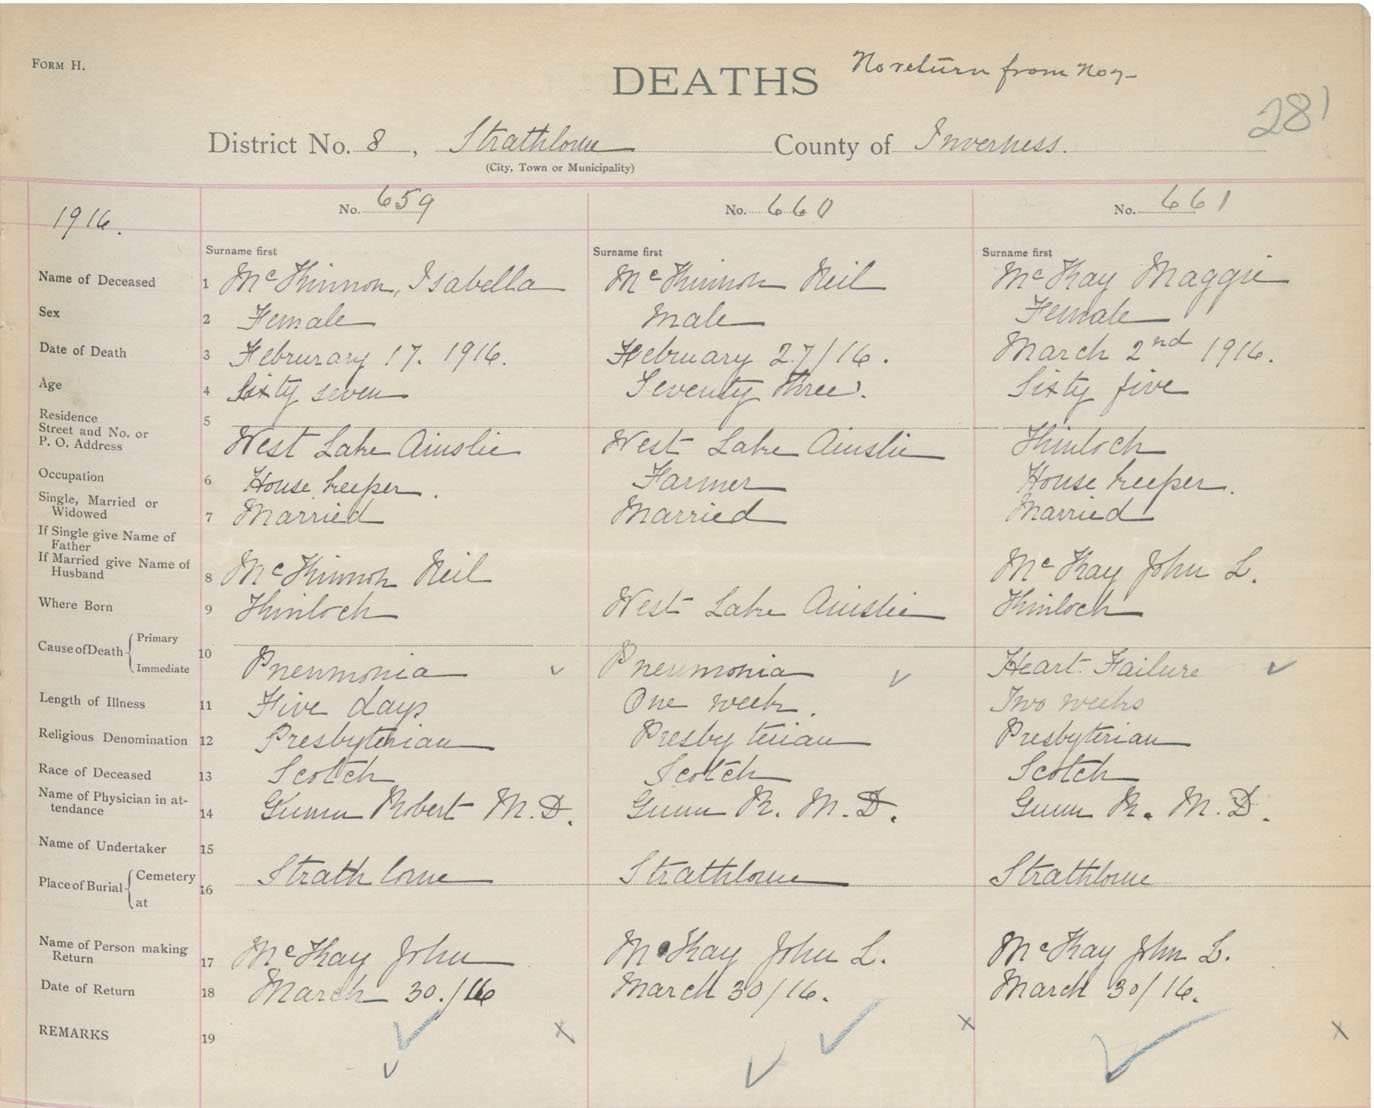 FORM H.
DEATHS No return from No 7-
281
District No. 8, Strathlorne County of Inverness.
(City, Town or Municipality)
1916.
No. 659 No. 660 No. 661
Surname first Surname first Surname first
Name of Deceased 1 McKinnon, Isabella McKinnon Neil McKay Maggie
Sex 2 Female Male Female
Date of Death 3 Februrary 17. 1916. February 27/16. March 2nd 1916.
Age 4 Sixty seven Seventy three. Sixty five
Residence
Street and No. or 5
P. O. Address West Lake Ainslie West Lake Ainslie Kinloch
Occupation 6 House keeper. Farmer House keeper.
Single, Married or
Widowed 7 Married Married Married
If Single give Name of
Father
If Married give Name of
Husband 8 McKinnon Neil McKay John L.
Where Born 9 Kinloch West Lake Ainslie Kinloch
Cause of Death Primary 10
Immediate Pneumonia Pneumonia Heart Failure
Length of Illness 11 Five days One week. Two weeks
Religious Denomination 12 Presbyterian Presbyterian Presbyterian
Race of Deceased 13 Scotch Scotch Scotch
Name of Physician in at-
tendance 14 Gunn Robert M.D. Gunn R. M.D. Gunn R. M.D.
Name of Undertaker 15
Place of Burial Cemetery 16 Strathlorne Strathlorne Strathlorne
at
Name of Person making
Return 17 McKay John McKay John L. McKay John L.
Date of Return 18 March 30./16 March 30/16. March 30/16.
REMARKS 19 x x x